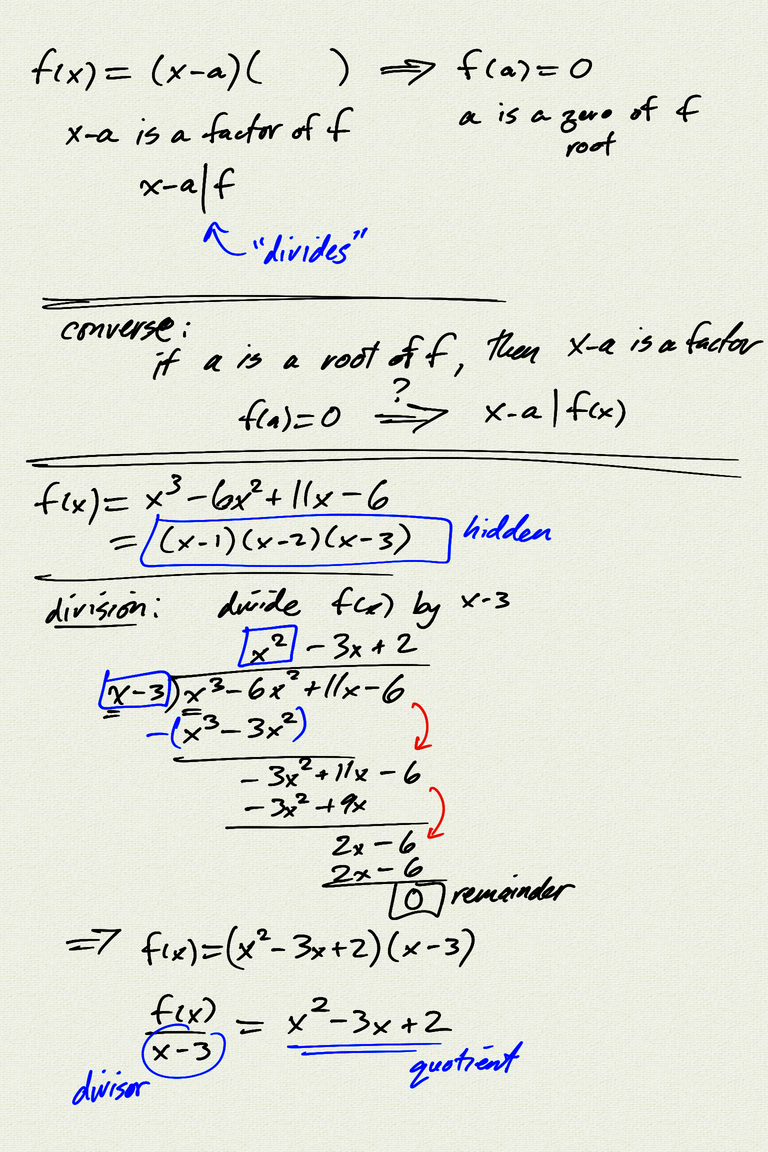 f(x) = (x-a)( ) ⟹ f(a) = 0
x-a is a factor of f
a is a zero of f
root
x-a | f
"divides"
converse:
if a is a root of f, then x-a is a factor
f(a)=0 ⟹ x-a | f(x)
?
f(x) = x³ - 6x² + 11x - 6
= (x-1)(x-2)(x-3) hidden
division: divide f(x) by x-3
x² - 3x + 2
x-3 ) x³ - 6x² + 11x - 6
-(x³ - 3x²)
- 3x² + 11x - 6
- 3x² + 9x
2x - 6
2x - 6
0 remainder
⟹ f(x) = (x² - 3x + 2)(x-3)
f(x)
x-3
= x² - 3x + 2
divisor
quotient